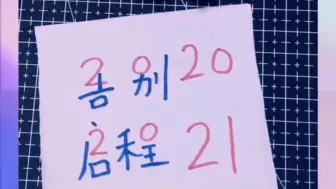 告别20
启程21